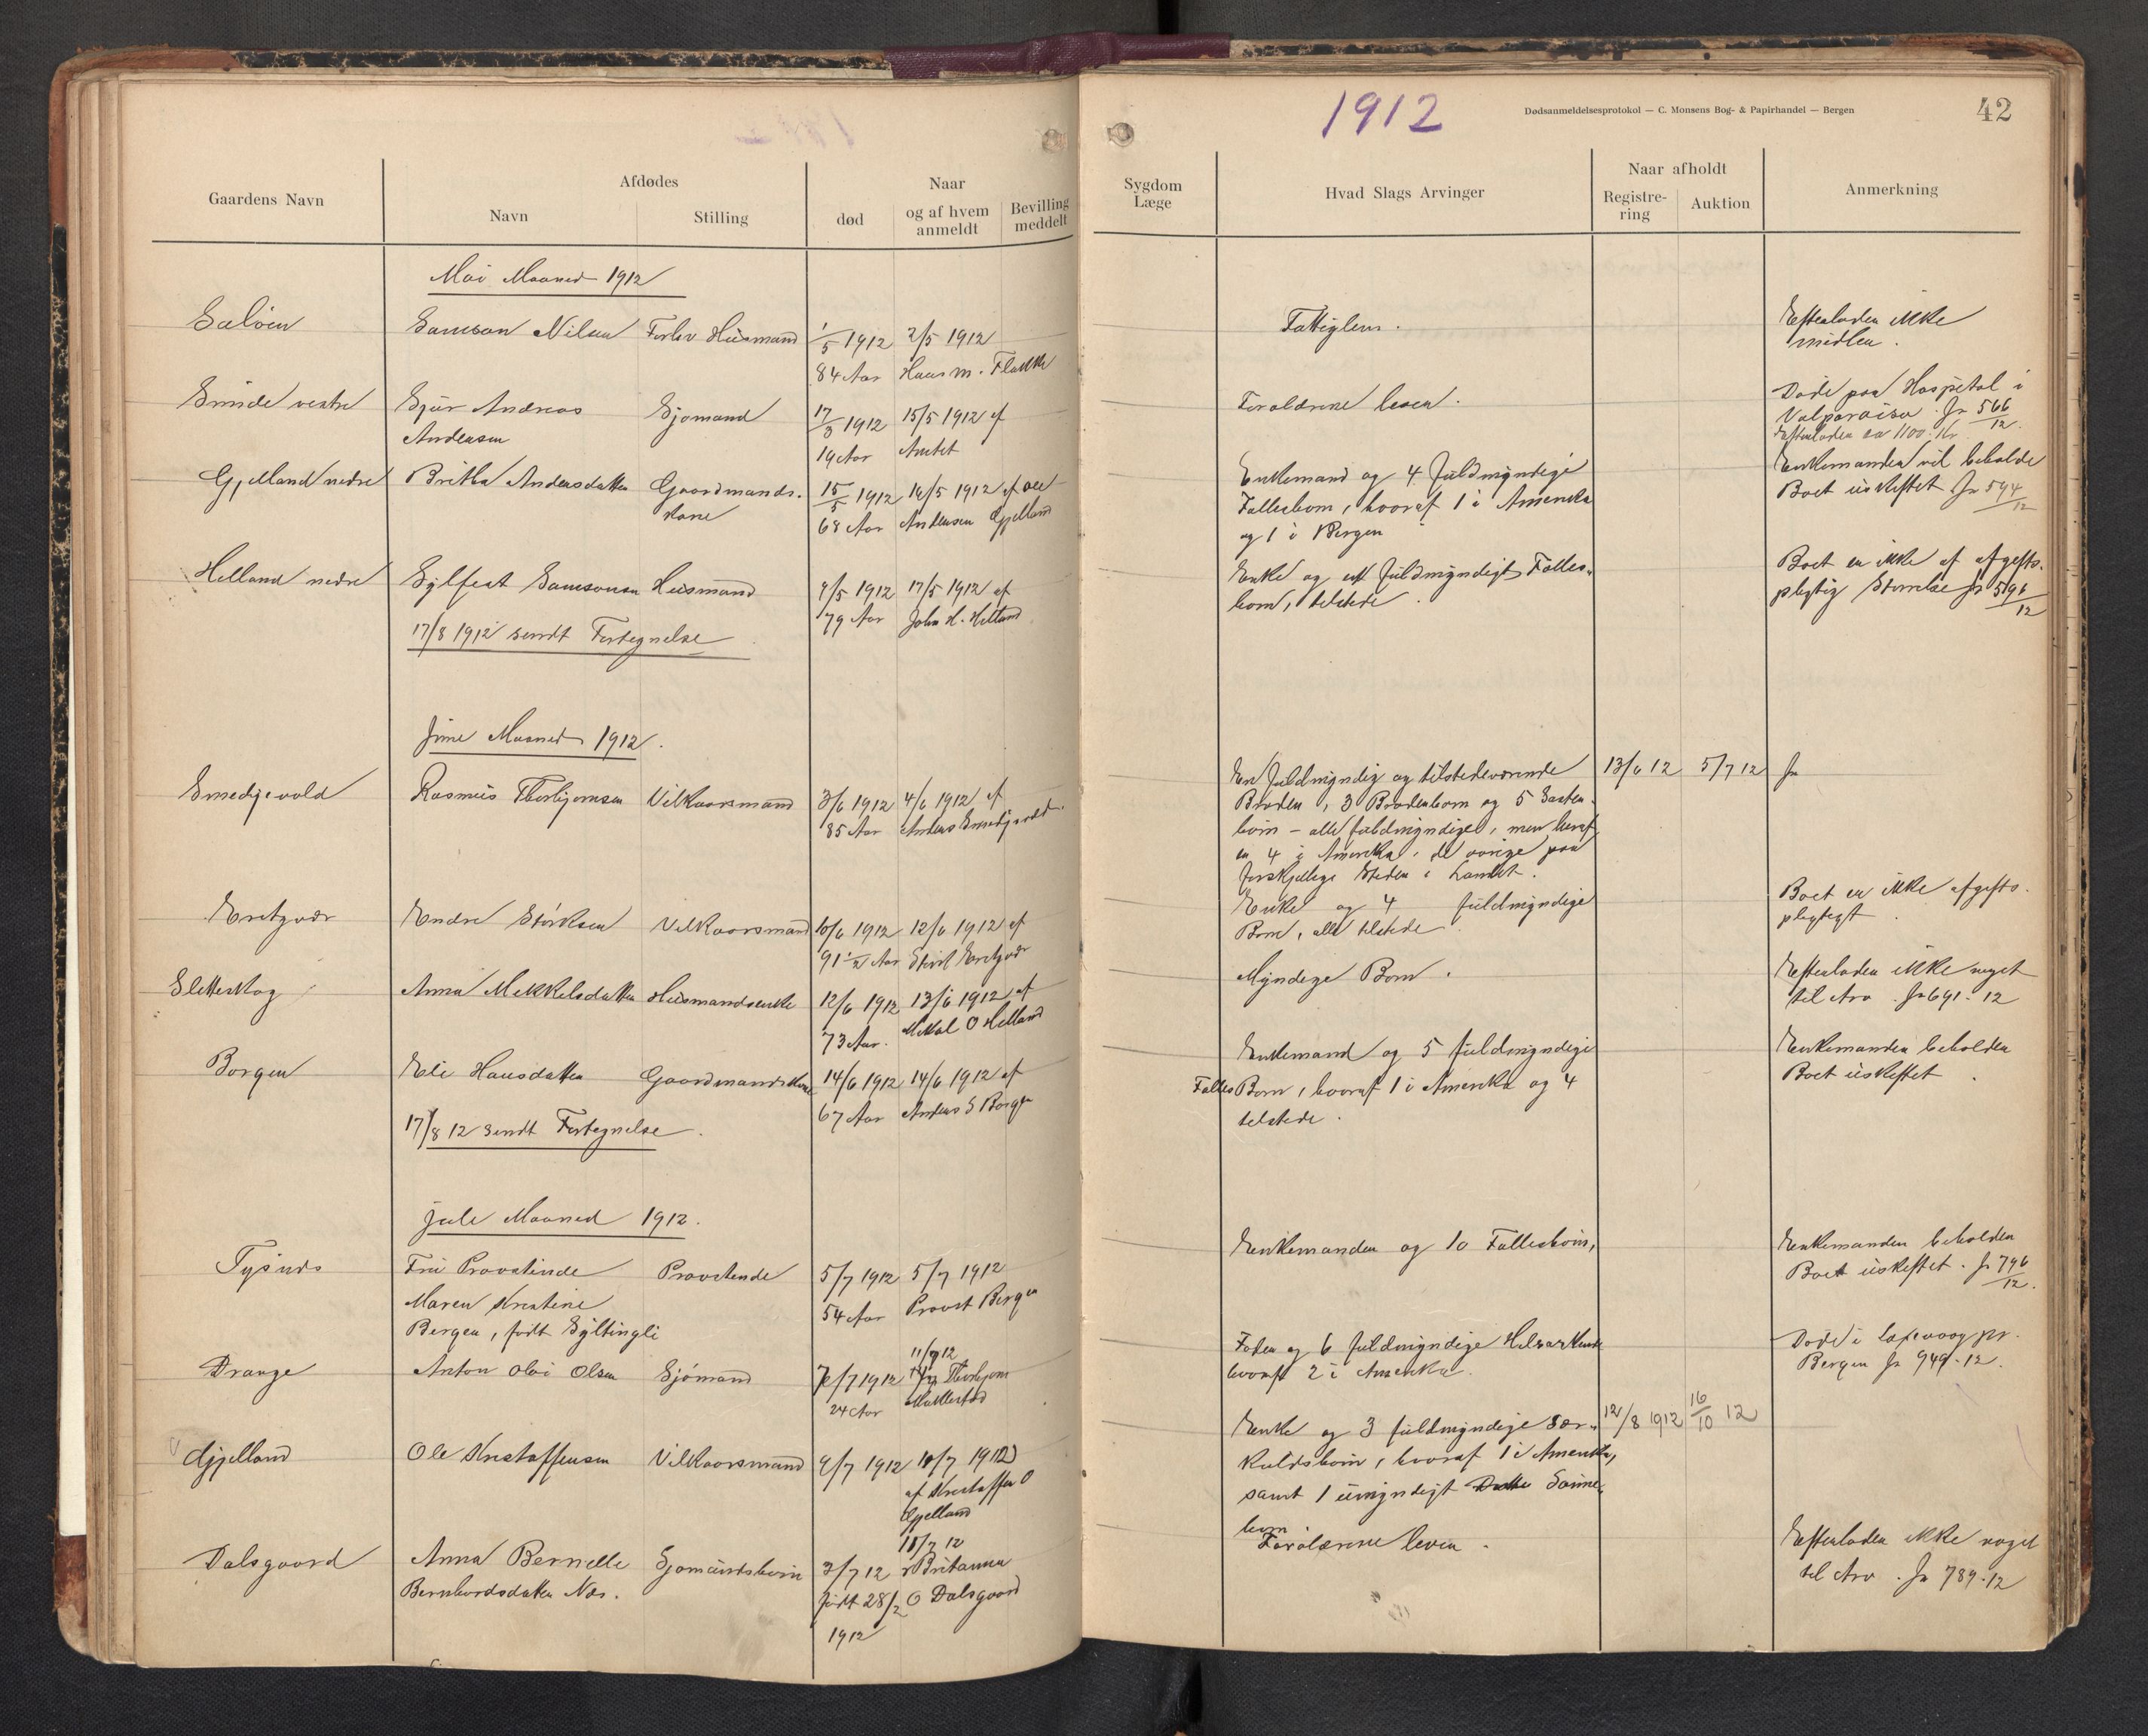 1912
Dødsanmeldelsesprotokol — C. Monsens Bog- & Papirhandel — Bergen
42
Gaardens Navn
Afdødes
Navn
Stilling
Naar
død
og af hvem anmeldt
Bevilling meddelt
Sygdom
Læge
Hvad Slags Arvinger
Naar afholdt
Registrering
Auktion
Anmerkning
Mai Maaned 1912
Sæløen
Samson Nilsen
Forhv Husmand
1/5 1912
2/5 1912
84 Aar
Hans M. Flakke
Fattiglem.
Efterlader ikke
midler.
Sunde vestre
Sjur Andreas
Andersen
Sjømand
17/3 1912
15/5 1912 af
19 Aar
Amtet
Forældrene lever.
Døde paa Hospital i
Valparaiso. Jr 566/12.
Efterlader ca 1100 Kr
Gjelland nedre
Britha Andersdatter
Gaardmands-
kone
15/5 1912
16/5 1912 af
68 Aar
Andersen Gjelland
Enkemand og 4 fuldmyndige
Fællesbørn, hvoraf 1 i Amerika
og 1 i Bergen
Enkemanden vil beholde
Boet uskiftet Jr 594/12
Helland nedre
Sylfest Samsonsen
Husmand
9/5 1912
17/5 1912 af
79 Aar
John H. Helland
17/8 1912 sendt Fortegnelse
Enke og et fuldmyndigt Fælles-
barn, tilstede.
Boet er ikke af afgifts-
pligtig Størrelse Jr 596/12
Juni Maaned 1912.
Smedjevold
Rasmus Thorbjørnsen
Vilkaarsmand
3/6 1912
4/6 1912 af
85 Aar
Anders Smedjevold
En fuldmyndig og tilstedeværende
Broder, 3 Broderbørn og 5 Søster-
børn - alle fuldmyndige, men heraf
er 4 i Amerika, de øvrige paa
forskjellige Steder i Landet.
13/6 12
5/7 12
Jr
Endre Størksen
Vilkaarsmand
10/6 1912
12/6 1912 af
91 1/2 Aar
Enke og 4 fuldmyndige
Børn, alle tilstede.
Boet er ikke afgifts-
pligtigt.
Sletteskog
Anna Mikkelsdatter
Husmandsenke
12/6 1912
13/6 1912 af
73 Aar.
Mikal O Helland
Myndige Børn.
Efterlader ikke noget
til Arv. Jr 691-12
Borgen
Eli Hansdatter
Gaardmandskone
14/6 1912
14/6 1912 af
67 Aar
Anders S Borgen
17/8 12 sendt Fortegnelse.
Enkemand og 5 fuldmyndige
Fælles Børn, hvoraf 1 i Amerika og 4
tilstede.
Enkemanden beholder
Boet uskiftet.
Juli Maaned 1912.
Tysnes
Fru Provstinde
Maren Kristine
Bergen, født Syltingli
Provstinde
5/7 1912
5/7 1912
54 Aar
Provst Bergen
Enkemanden og 10 Fællesbørn,
Enkemanden beholder
Boet uskiftet. Jr 796/12.
Drange
Anton Olai Olsen
Sjømand
7/7 1912
11/7 12
24 Aar
Fader og 6 fuldmyndige Helsøskende
hvoraf 2 i Amerika.
Døde i Laxevaag pr.
Bergen Jr 949-12.
Gjelland
Ole Kristoffersen
Vilkaarsmand
9/7 1912
10/7 1912
af Kristoffer O
Gjelland
Enke og 3 fuldmyndige Sær-
kuldsbørn, hvoraf 1 i Amerika,
samt 1 umyndigt Sønne-
barn.
12/8 1912
16/10 12
Dalsgaard
Anna Bernette
Bernhardsdatter Næs.
Sjømandsbarn
3/7 12
født 28/2
1912
18/7 12
v Britanna
O Dalsgaard
Forældrene lever.
Efterlader ikke noget
til Arv. Jr 789-12